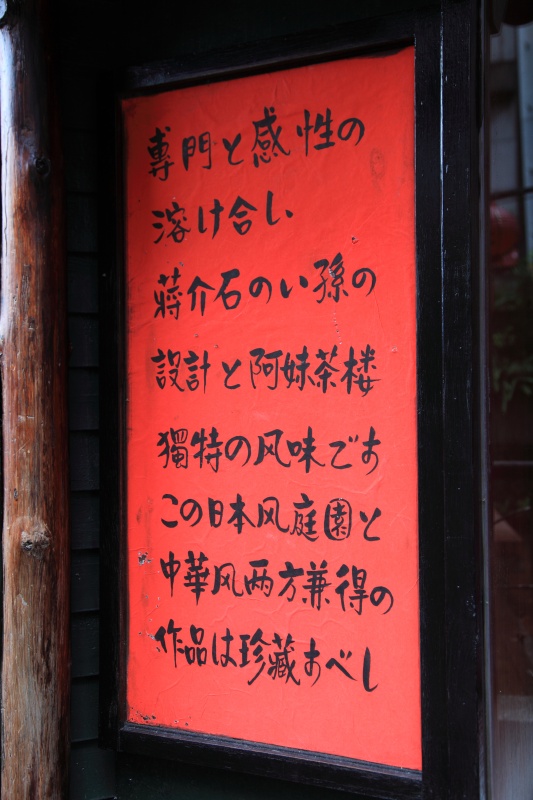 專門と感性の
溶け合い
蔣介石のい孫の
設計と阿妹茶楼
獨特の风味です
この日本风庭園と
中華风两方兼得の
作品は珍藏あべし